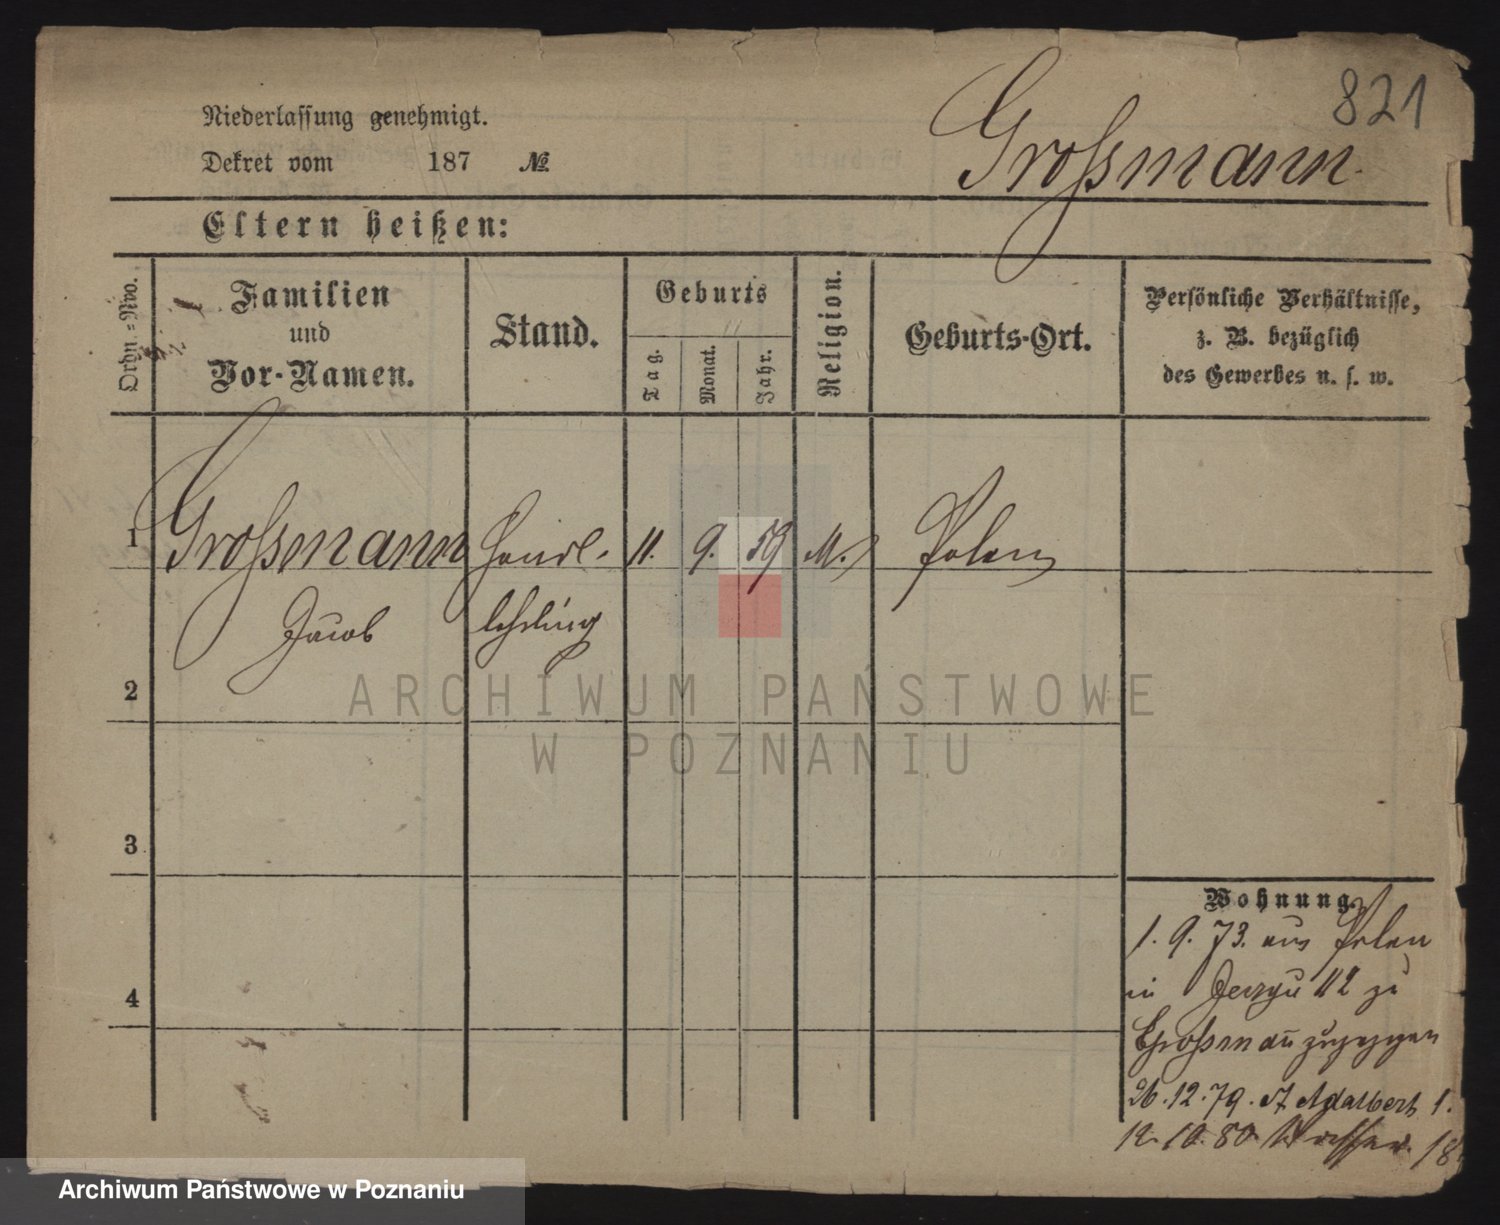 821
Niederlassung genehmigt.
Dekret vom 187 №
Grossmann.
Eltern heißen:
Ordn.-Nro.
Familien
und
Vor-Namen.
Stand.
Geburts
Tag.
Monat.
Jahr.
Religion.
Geburts-Ort.
Persönliche Verhältnisse,
z. B. bezüglich
des Gewerbes u. s. w.
1 Grossmann Handl- 11. 9. 59 M. Polen
Jacob lehrling
2
3
4
Wohnung.
1. 9. 73. aus Polen
in 112 zu
Grossmann zugezogen
26.12.79. St Adalbert 1.
12.10.80. Wasser. 18
ARCHIWUM PAŃSTWOWE
W POZNANIU
Archiwum Państwowe w Poznaniu